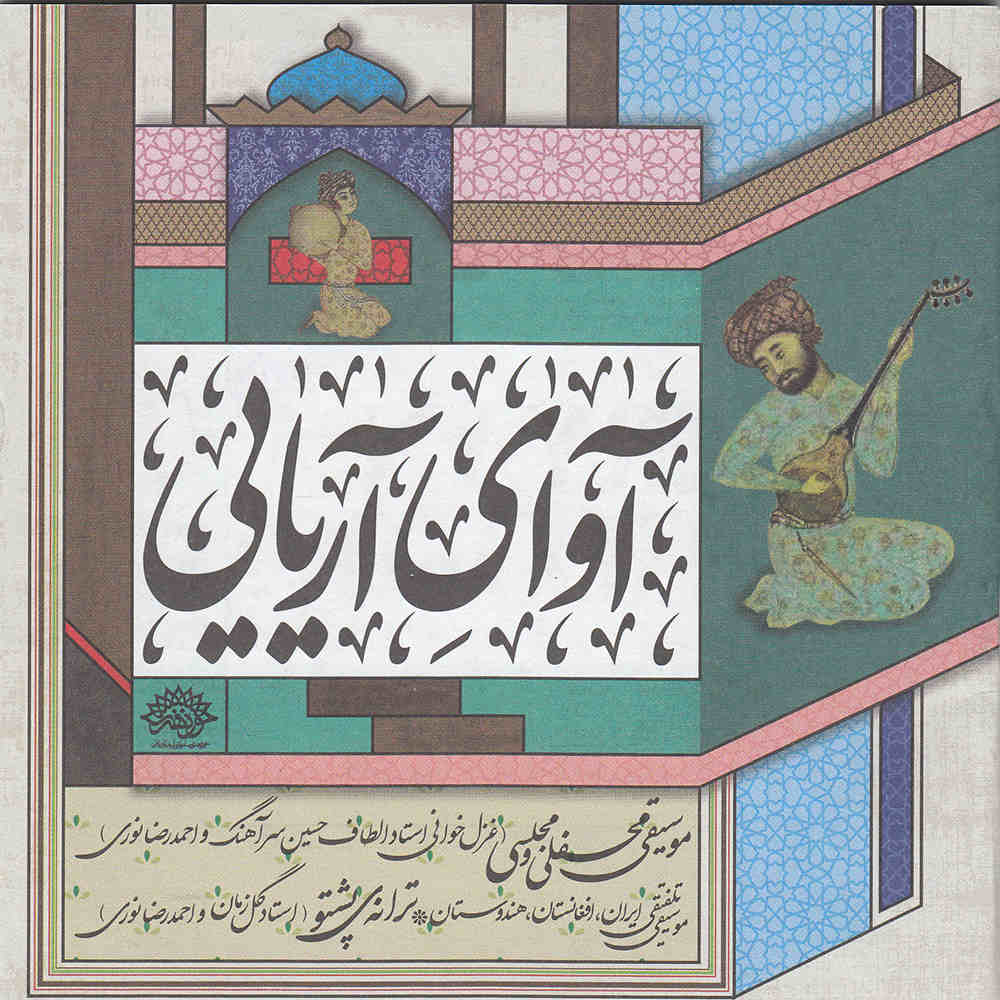 آوای آریایی
موسیقی محفلی و مجلسی (غزل خوانی استاد الطاف حسین سرآهنگ و احمدرضا نوری)
موسیقی تلفیقی ایران، افغانستان، هندوستان * ترانه‌ی پشتو (استاد گل زمان و احمدرضا نوری)